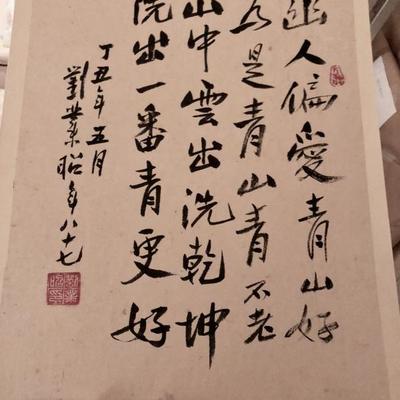 幽人偏愛青山好
為是青山青不老
山中雲出洗乾坤
洗出一番青更好
丁丑年五月
劉業昭年八十七